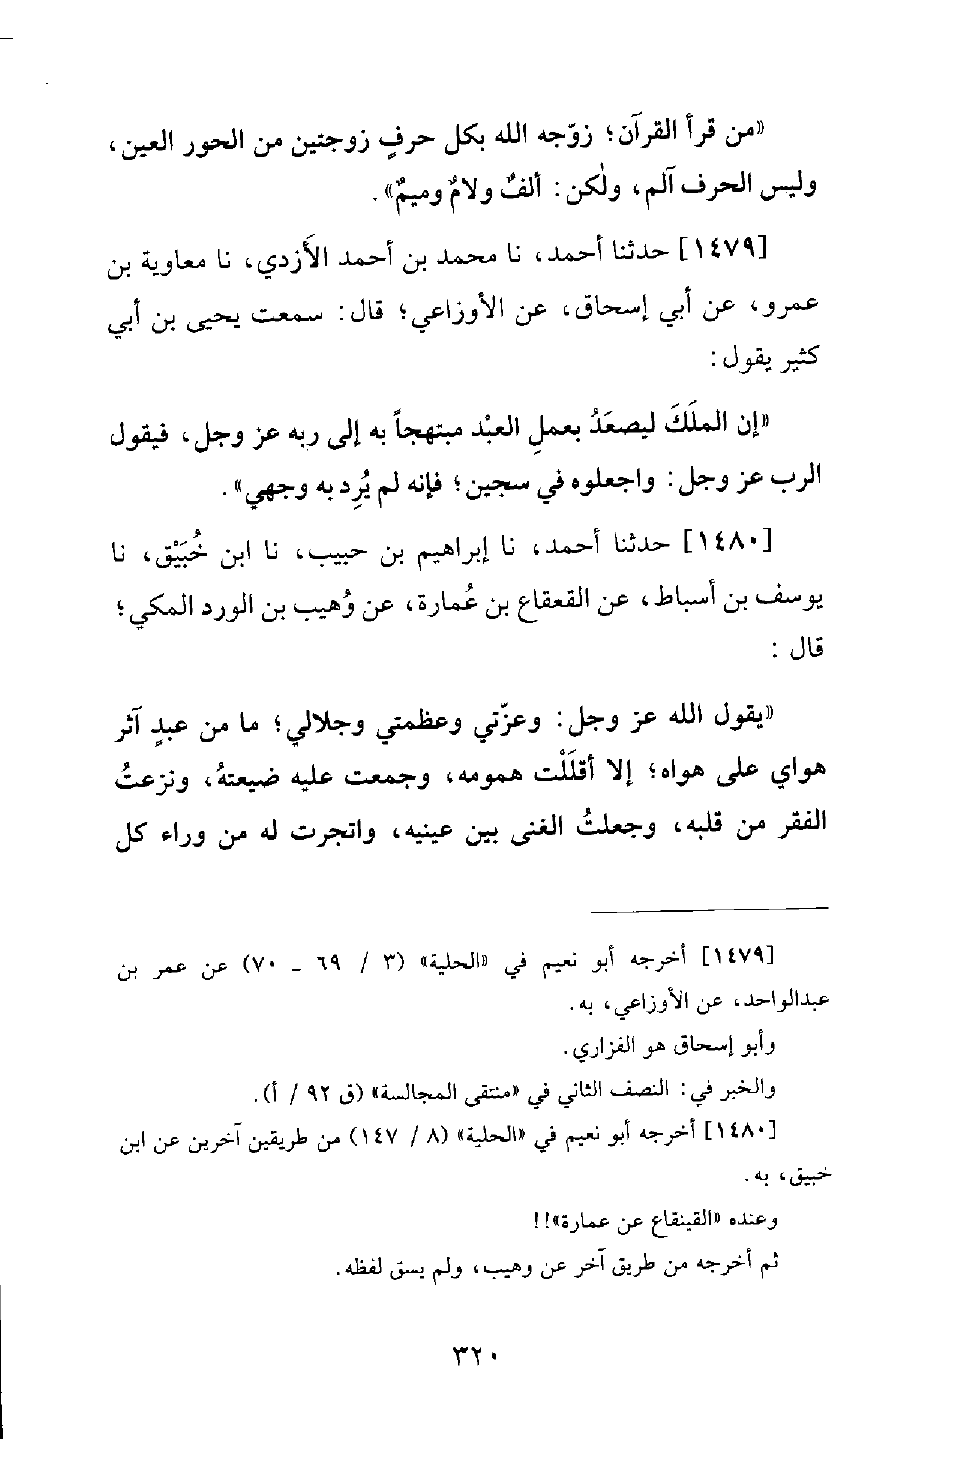 «من قرأ القرآن؛ زوّجه الله بكل حرفٍ زوجتين من الحور العين،
وليس الحرف آلم، ولٰكن: ألفٌ ولامٌ وميمٌ».
[١٤٧٩] حدثنا أحمد، نا محمد بن أحمد الأَزدي، نا معاوية بن
عمرو، عن أبي إسحاق، عن الأوزاعي؛ قال: سمعت يحيى بن أبي
كثير يقول:
«إن الملَكَ ليصعَدُ بعملِ العبْد مبتهجاً به إلى ربه عز وجل، فيقول
الرب عز وجل: واجعلوه في سجين؛ فإنه لم يُرِد به وجهي».
[١٤٨٠] حدثنا أحمد، نا إبراهيم بن حبيب، نا ابن خُبَيْق، نا
يوسف بن أسباط، عن القعقاع بن عُمارة، عن وُهيب بن الورد المكي؛
قال:
«يقول الله عز وجل: وعزّتي وعظمتي وجلالي؛ ما من عبدٍ آثر
هواي على هواه؛ إلا أقلَلْت همومه، وجمعت عليه ضيعتهُ، ونزعتُ
الفقر من قلبه، وجعلتُ الغنى بين عينيه، واتجرت له من وراء كل
[١٤٧٩] أخرجه أبو نعيم في «الحلية» (٣ / ٦٩ ـ ٧٠) عن عمر بن
عبدالواحد، عن الأوزاعي، به.
وأبو إسحاق هو الفزاري.
والخبر في: النصف الثاني في «منتقى المجالسة» (ق ٩٢ / أ).
[١٤٨٠] أخرجه أبو نعيم في «الحلية» (٨ / ١٤٧) من طريقين آخرين عن ابن
خبيق، به.
وعنده «القينقاع عن عمارة»!!
ثم أخرجه من طريق آخر عن وهيب، ولم يسق لفظه.
٣٢٠